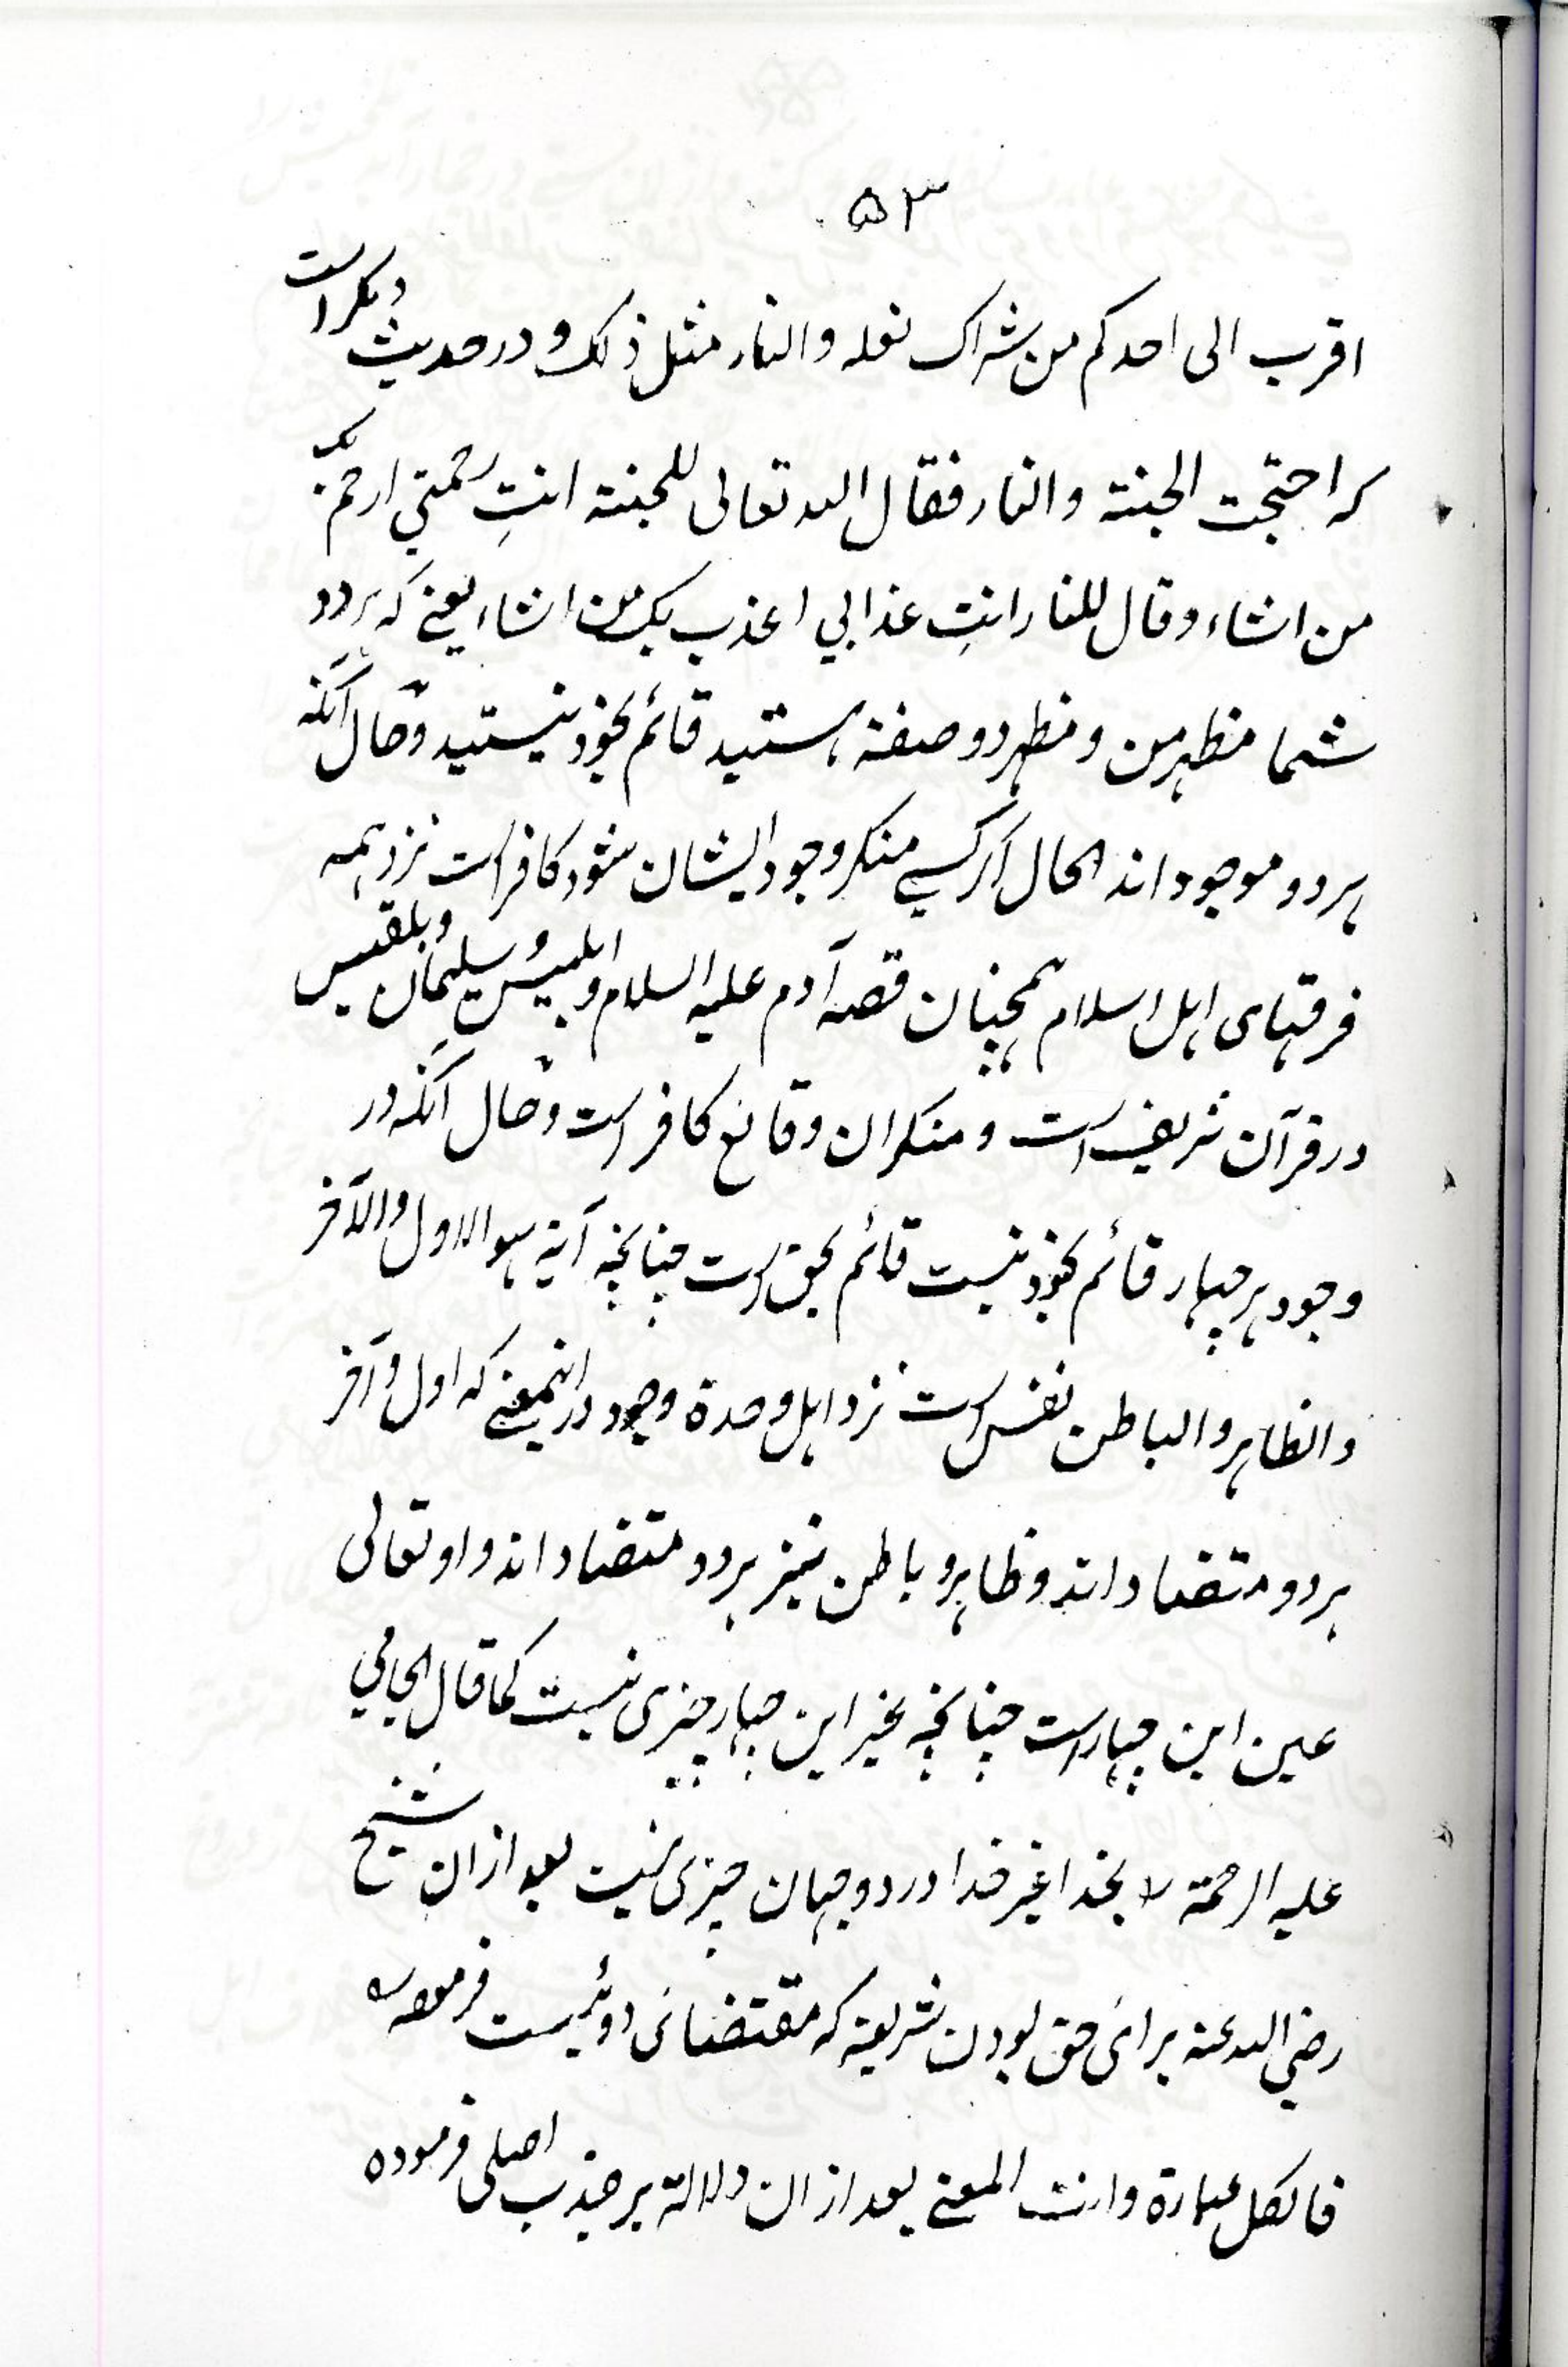 ۵۳
اقرب الی احدکم من شراک نعله والنار مثل ذلک و در حدیث دیگر است
که احتجت الجنته والنار فقال الله تعالی للجنته انتِ رحمتی ارحم بک
من اشاء وقال للنار انتِ عذابی اعذب بک من اشاء یعنے که هر دو
شما مظهر من و مظهر دو صفته هستید قائم بخود نیستید وحال آنکه
هر دو موجود اند الحال اگر کسے منکر وجود ایشان شود کافر است نزد همه
فرقهای اهل اسلام همچنان قصه آدم علیه السلام و ابلیس و سلیمان و بلقیس
در قرآن شریف است و منکران وقائع کافر است وحال آنکه در
وجود هر چهار قائم بخود نیست قائم بحق است چنانچه آیة هو الاول والآخر
والظاهر والباطن نفس است نزد اهل وحدة وجود در اینمعنے که اول و آخر
هر دو متضاد اند و ظاهر و باطن نیز هر دو متضاد اند و او تعالی
عین این چهار است چنانچه بغیر این چهار چیزی نیست کما قال الجامی
علیه الرحمة لا بخدا غیر خدا در دو جهان چیزی نیست بعد ازان شیخ
رضی الله عنه برای حق بودن شریعة که مقتضای دوئیست فرموده
فالکل عبارة وانت المعنے بعد ازان دلالة بر جذب اصلی فرموده